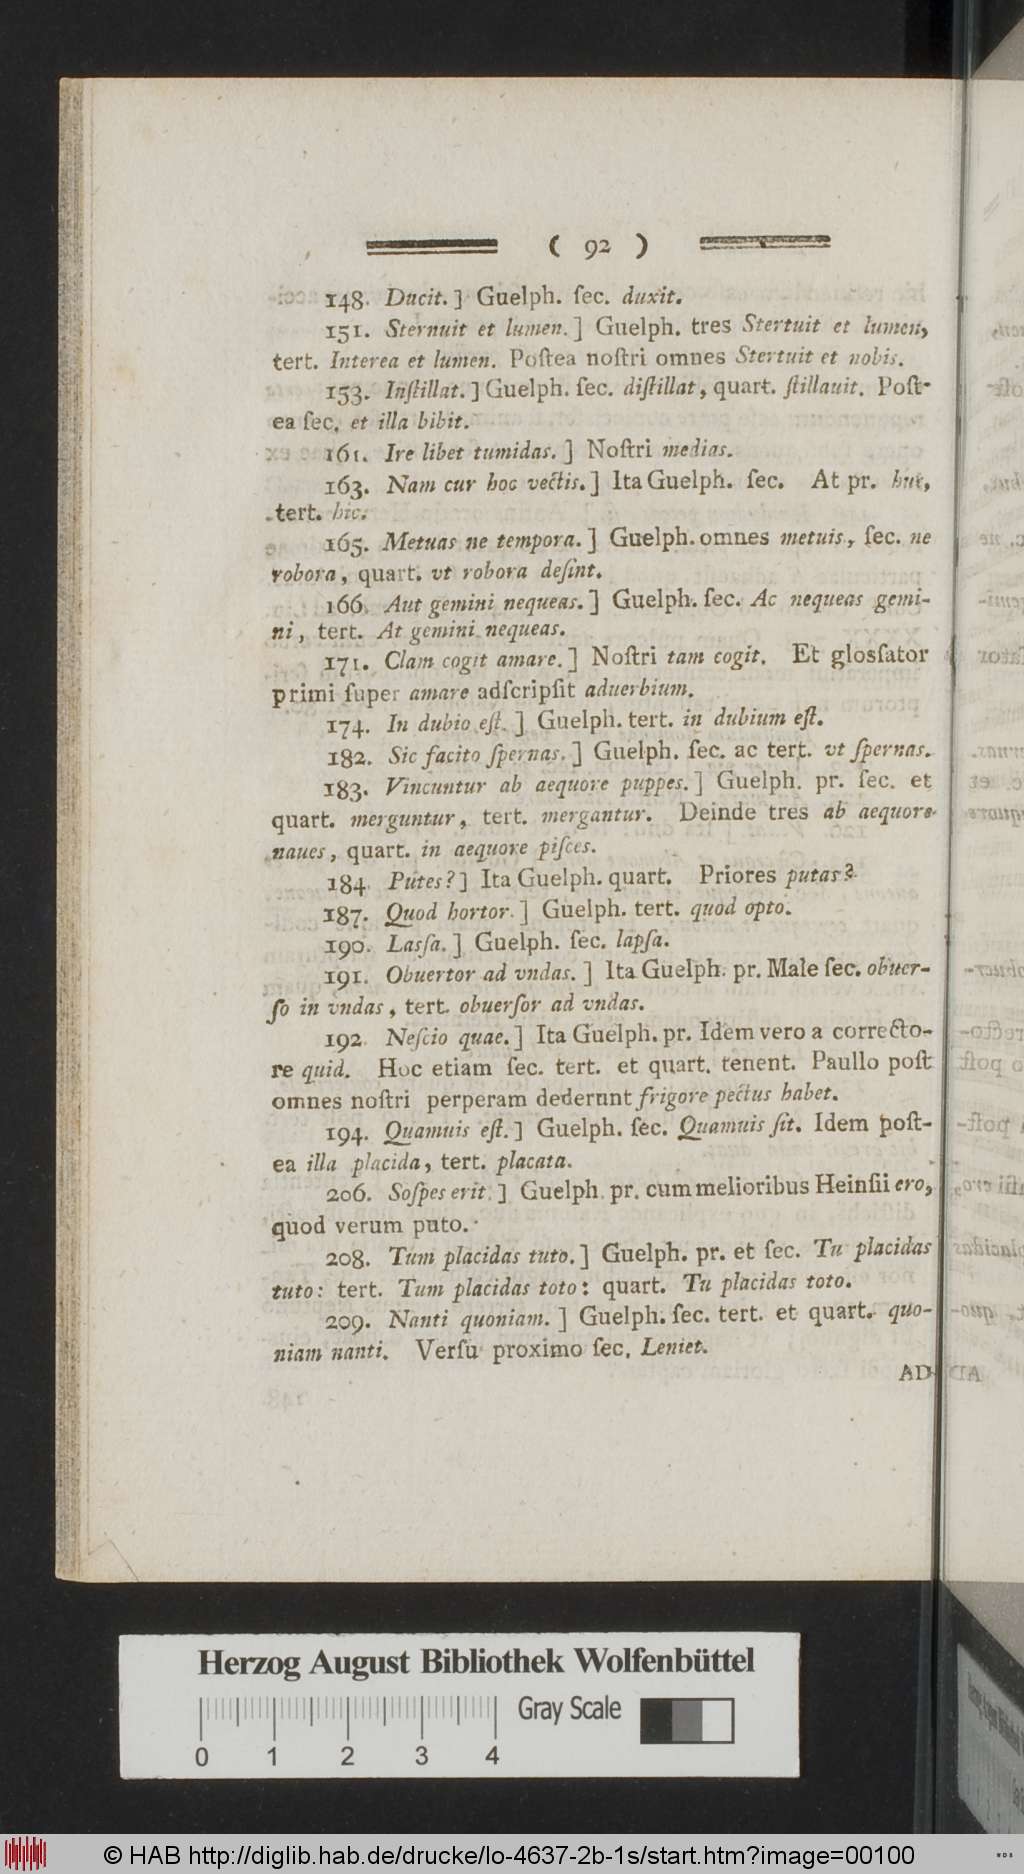 ( 92 )
148. Ducit. ] Guelph. ſec. duxit.
151. Sternuit et lumen. ] Guelph. tres Stertuit et lumen,
tert. Interea et lumen. Poſtea noſtri omnes Stertuit et nobis.
153. Inſtillat. ] Guelph. ſec. diſtillat, quart. ſtillauit. Poſt-
ea ſec. et illa bibit.
161. Ire libet tumidas. ] Noſtri medias.
163. Nam cur hoc vectis. ] Ita Guelph. ſec. At pr. huc,
tert. hic.
165. Metuas ne tempora. ] Guelph. omnes metuis, ſec. ne
robora, quart. vt robora deſint.
166. Aut gemini nequeas. ] Guelph. ſec. Ac nequeas gemi-
ni, tert. At gemini nequeas.
171. Clam cogit amare. ] Noſtri tam cogit. Et gloſſator
primi ſuper amare adſcripſit aduerbium.
174. In dubio eſt. ] Guelph. tert. in dubium eſt.
182. Sic facito ſpernas. ] Guelph. ſec. ac tert. vt ſpernas.
183. Vincuntur ab aequore puppes. ] Guelph. pr. ſec. et
quart. merguntur, tert. mergantur. Deinde tres ab aequore
naues, quart. in aequore piſces.
184. Putes? ] Ita Guelph. quart. Priores putas?
187. Quod hortor. ] Guelph. tert. quod opto.
190. Laſſa. ] Guelph. ſec. lapſa.
191. Obuertor ad vndas. ] Ita Guelph. pr. Male ſec. obuer-
ſo in vndas, tert. obuerſor ad vndas.
192. Neſcio quae. ] Ita Guelph. pr. Idem vero a correcto-
re quid. Hoc etiam ſec. tert. et quart. tenent. Paullo poſt
omnes noſtri perperam dederunt frigore pectus habet.
194. Quamuis eſt. ] Guelph. ſec. Quamuis ſit. Idem poſt-
ea illa placida, tert. placata.
206. Soſpes erit. ] Guelph. pr. cum melioribus Heinſii ero,
quod verum puto.
208. Tum placidas tuto. ] Guelph. pr. et ſec. Tu placidas
tuto: tert. Tum placidas toto: quart. Tu placidas toto.
209. Nanti quoniam. ] Guelph. ſec. tert. et quart. quo-
niam nanti. Verſu proximo ſec. Leniet.
AD
Herzog August Bibliothek Wolfenbüttel
Gray Scale
0 1 2 3 4
© HAB http://diglib.hab.de/drucke/lo-4637-2b-1s/start.htm?image=00100